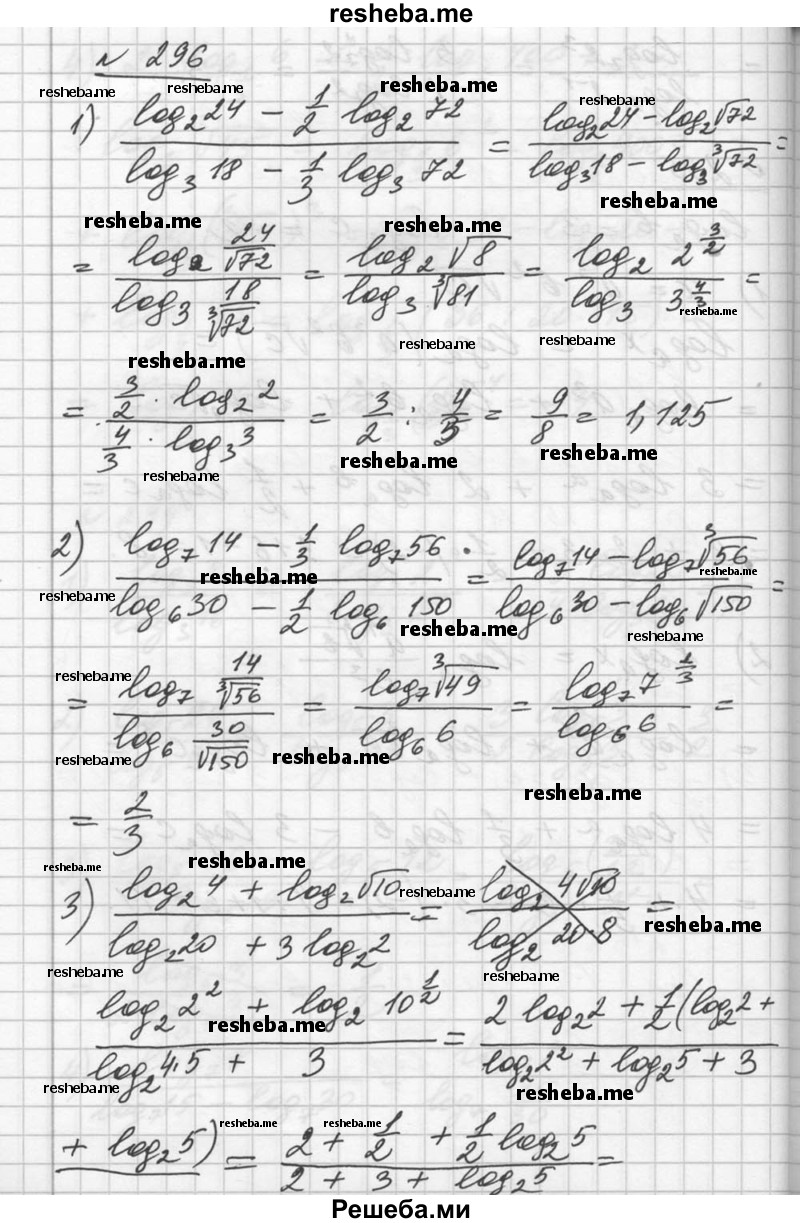 resheba.me
№ 296
1) (log₂24 − 1/2 log₂72)/(log₃18 − 1/3 log₃72) = (log₂24 − log₂√72)/(log₃18 − log₃∛72) =
= (log₂ 24/√72)/(log₃ 18/∛72) = (log₂√8)/(log₃∛81) = (log₂ 2^(3/2))/(log₃ 3^(4/3)) =
= (3/2 · log₂2)/(4/3 · log₃3) = 3/2 : 4/3 = 9/8 = 1,125
2) (log₇14 − 1/3 log₇56)/(log₆30 − 1/2 log₆150) = (log₇14 − log₇∛56)/(log₆30 − log₆√150) =
= (log₇ 14/∛56)/(log₆ 30/√150) = (log₇∛49)/(log₆6) = (log₇7^(2/3))/(log₆6) =
= 2/3
3) (log₂4 + log₂√10)/(log₂20 + 3log₂2) = (log₂ 4√10)/(log₂ 20·8) =
(log₂2² + log₂10^(1/2))/(log₂4·5 + 3) = (2 log₂2 + 1/2(log₂2 +)/(log₂2² + log₂5 + 3)
+ log₂5) = (2 + 1/2 + 1/2 log₂5)/(2 + 3 + log₂5) =
Решеба.ми